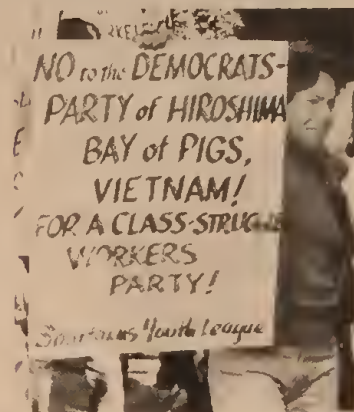 NO to the DEMOCRATS-
PARTY of HIROSHIMA
BAY of PIGS,
VIETNAM!
FOR A CLASS-STRUGGLE
WORKERS
PARTY!
Spartacus Youth League